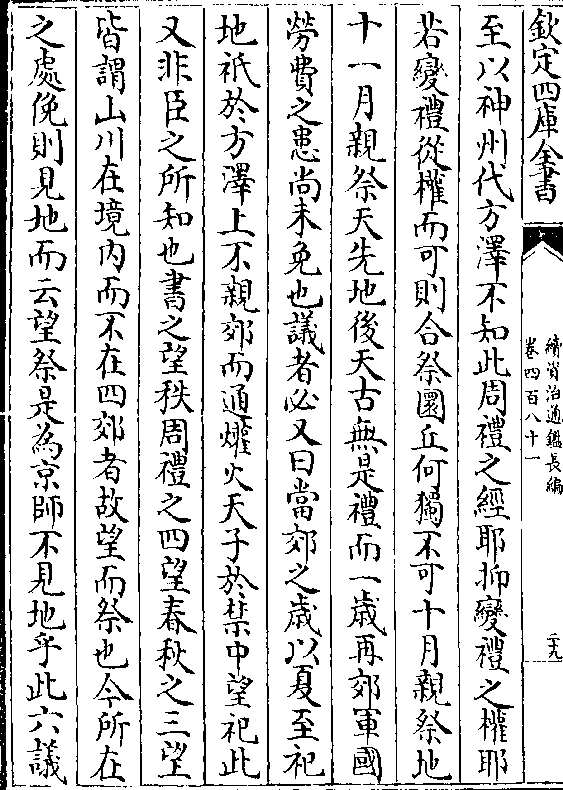 欽定四庫全書
續資治通鑑長編
卷四百八十一
二九
至以神州代方澤不知此周禮之經耶抑變禮之權耶
若變禮從權而可則合祭圜丘何獨不可十月親祭地
十一月親祭天先地後天古無是禮而一歲再郊軍國
勞費之患尚未免也議者必又曰當郊之歲以夏至祀
地祇於方澤上不親郊而通爟火天子於禁中望祀此
又非臣之所知也書之望秩周禮之四望春秋之三望
皆謂山川在境內而不在四郊者故望而祭也今所在
之處俛則見地而云望祭是為京師不見地乎此六議